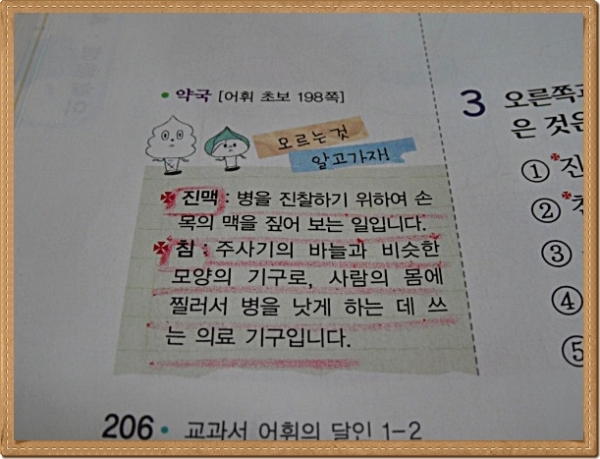 • 약국 [어휘 초보 198쪽]
모르는 것
알고가자!
진맥 : 병을 진찰하기 위하여 손
목의 맥을 짚어 보는 일입니다.
침 : 주사기의 바늘과 비슷한
모양의 기구로, 사람의 몸에
찔러서 병을 낫게 하는 데 쓰
는 의료 기구입니다.
206 • 교과서 어휘의 달인 1-2
3 오른쪽
은 것은
① 진
②
③
④
⑤